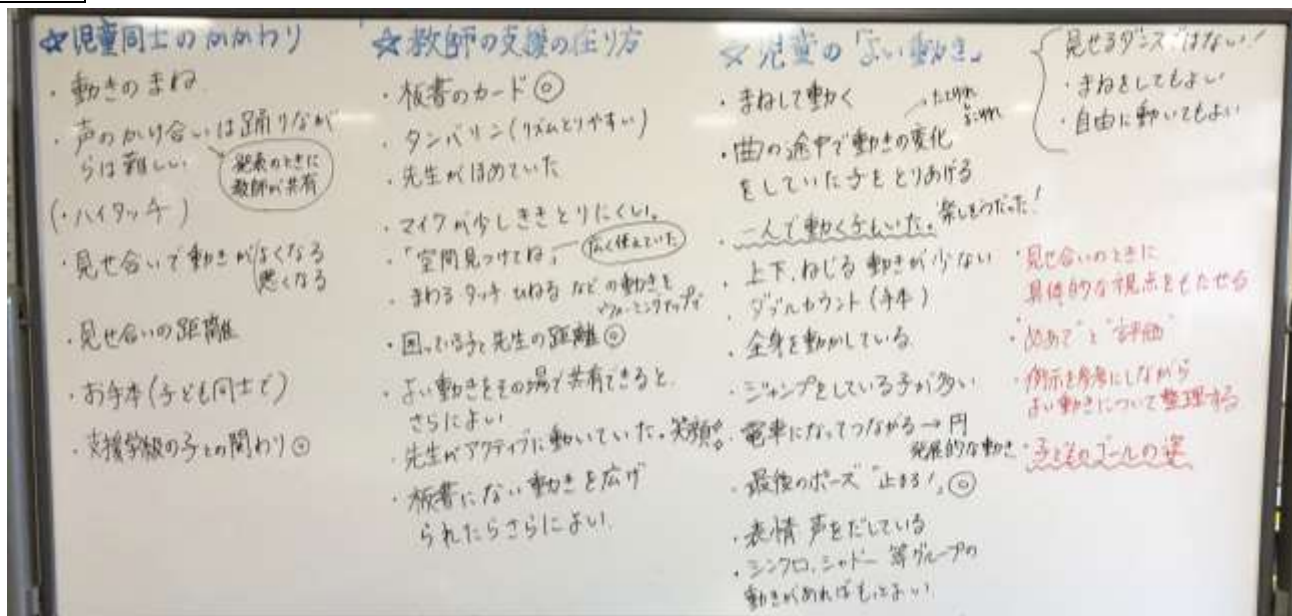 ☆児童同士のかかわり
・動きのまね
・声のかけ合いは踊りなが
らは難しい
発表のときに
教師が共有
(・ハイタッチ)
・見せ合いで動きがよくなる
悪くなる
・見せ合いの距離
・お手本(子ども同士で)
・支援学級の子との関わり◎
☆教師の支援の在り方
・板書のカード◎
・タンバリン(リズムとりやすい)
・先生がほめていた
・マイクが少しききとりにくい。
・「空間見つけてね」
広く使えていた
・まわる タッチ ひねる などの動きを
ウォーミングアップで
・困っている子と先生の距離◎
・よい動きをその場で共有できると
さらによい
・先生がアクティブに動いていた。笑顔
・板書にない動きを広げ
られたらさらによい
☆児童の「よい動き」
・まねして動く
・曲の途中で動きの変化
をしていた子をとりあげる
・一人で動く子もいた。楽しそうだった!
・上下、ねじる 動きが少ない
・ダブルカウント(手本)
・全身を動かしている
・ジャンプをしている子が多い
・電車になってつながる→円
発展的な動き
・最後のポーズ "止まる!"◎
・表情 声をだしている
・シンクロ、シャドー 等グループの
動きがあればもっとよい
見せるダンスではない!
・まねをしてもよい
・自由に動いてもよい
・見せ合いのときに
具体的な視点をもたせる
・"めあて"と"評価"
・例示を参考にしながら
よい動きについて整理する
・子どものゴールの姿